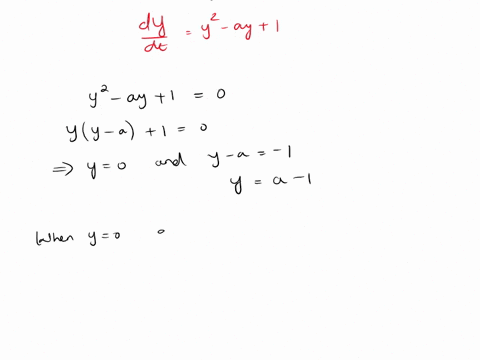 dy/dt = y² - ay + 1
y² - ay + 1 = 0
y(y-a) + 1 = 0
⇒ y = 0 and y-a = -1
y = a - 1
When y = 0